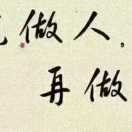 做人，
再做